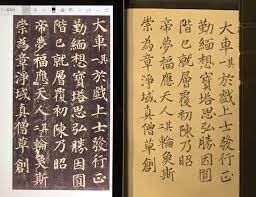 大車其一於戲上士發行正
勤緬想寶塔思弘勝因圓
階已就層覆初陳乃昭
帝夢福應天人其二輪奐斯
崇為章淨域真僧草創
大車其一於戲上士發行正
勤緬想寶塔思弘勝因圓
階已就層覆初陳乃昭
帝夢福應天人其二輪奐斯
崇為章淨域真僧草創